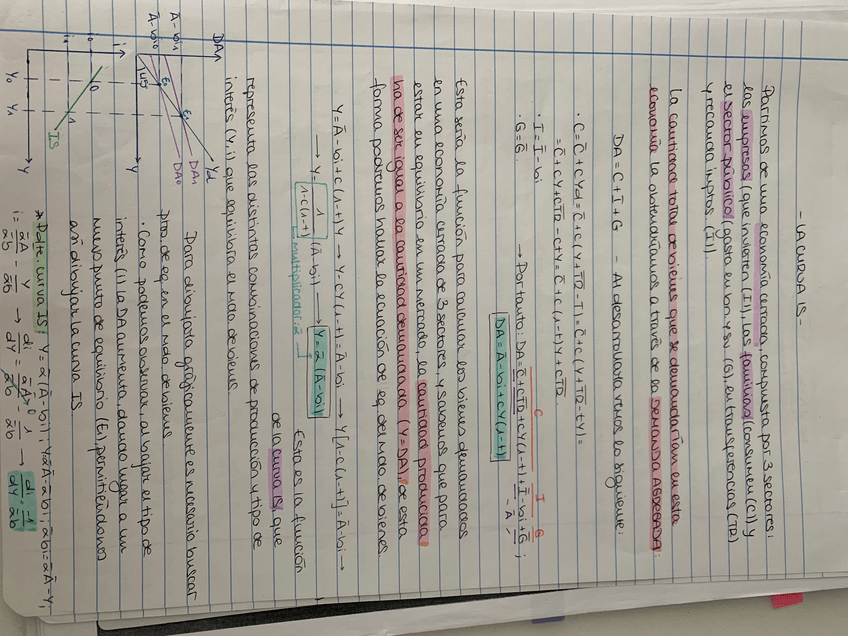 - LA CURVA IS -
Partimos de una economía cerrada, compuesta por 3 sectores:
las empresas (que invierten (I)), las familias (consumen (C)) y
el sector público (gasta en bn y sv (G), en transferencias (TR)
y recauda imptos (T)).
La cantidad total de bienes que se demandarían en esta
economía la obtendríamos a través de la DEMANDA AGREGADA:
DA = C + I + G → Al desarrollarla vemos lo siguiente:
· C = C̄ + cYd = C̄ + c(Y + T̄R̄ - T) = C̄ + c(Y + T̄R̄ - tY) =
= C̄ + cY + cT̄R̄ - ctY = C̄ + c(1-t)Y + cT̄R̄.
· I = Ī - bi
· G = Ḡ
→ Por tanto: DA = C̄ + cT̄R̄ + cY(1-t) + Ī - bi + Ḡ ;
C I G
Ā
DA = Ā - bi + cY(1-t)
Esta sería la función para calcular los bienes demandados
en una economía cerrada de 3 sectores, y sabemos que para
estar en equilibrio en un mercado, la cantidad producida
ha de ser igual a la cantidad demandada (Y=DA), de esta
forma podremos hallar la ecuación de eq del mdo de bienes.
Y = Ā - bi + c(1-t)Y → Y - cY(1-t) = Ā - bi → Y[1-c(1-t)] = Ā - bi →
→ Y = 1/1-c(1-t) (Ā - bi) → Y = α(Ā - bi)
multiplicador: α
Esta es la función
de la curva IS, que
representa las distintas combinaciones de producción y tipo de
interés (Y, i) que equilibra el mdo de bienes.
Para dibujarla gráficamente es necesario buscar
ptos. de eq en el mdo. de bienes
· Como podemos observar, al bajar el tipo de
interés (i) la DA aumenta, dando lugar a un
nuevo punto de equilibrio (E₁), permitiéndonos
así dibujar la curva IS
DA
Yd
DA₁
DA₀
Ā-bi₁
Ā-bi₀
E₁
E₀
45
Y
i
i₀
i₁
0
1
IS
Y₀ Y₁ Y
* Pdte. curva IS: Y = α(Ā - bi) ; Y = αĀ - αbi ; αbi = αĀ - Y ;
i = αĀ/αb - Y/αb → di/dY = αĀ/αb - 1/αb → di/dY = -1/αb